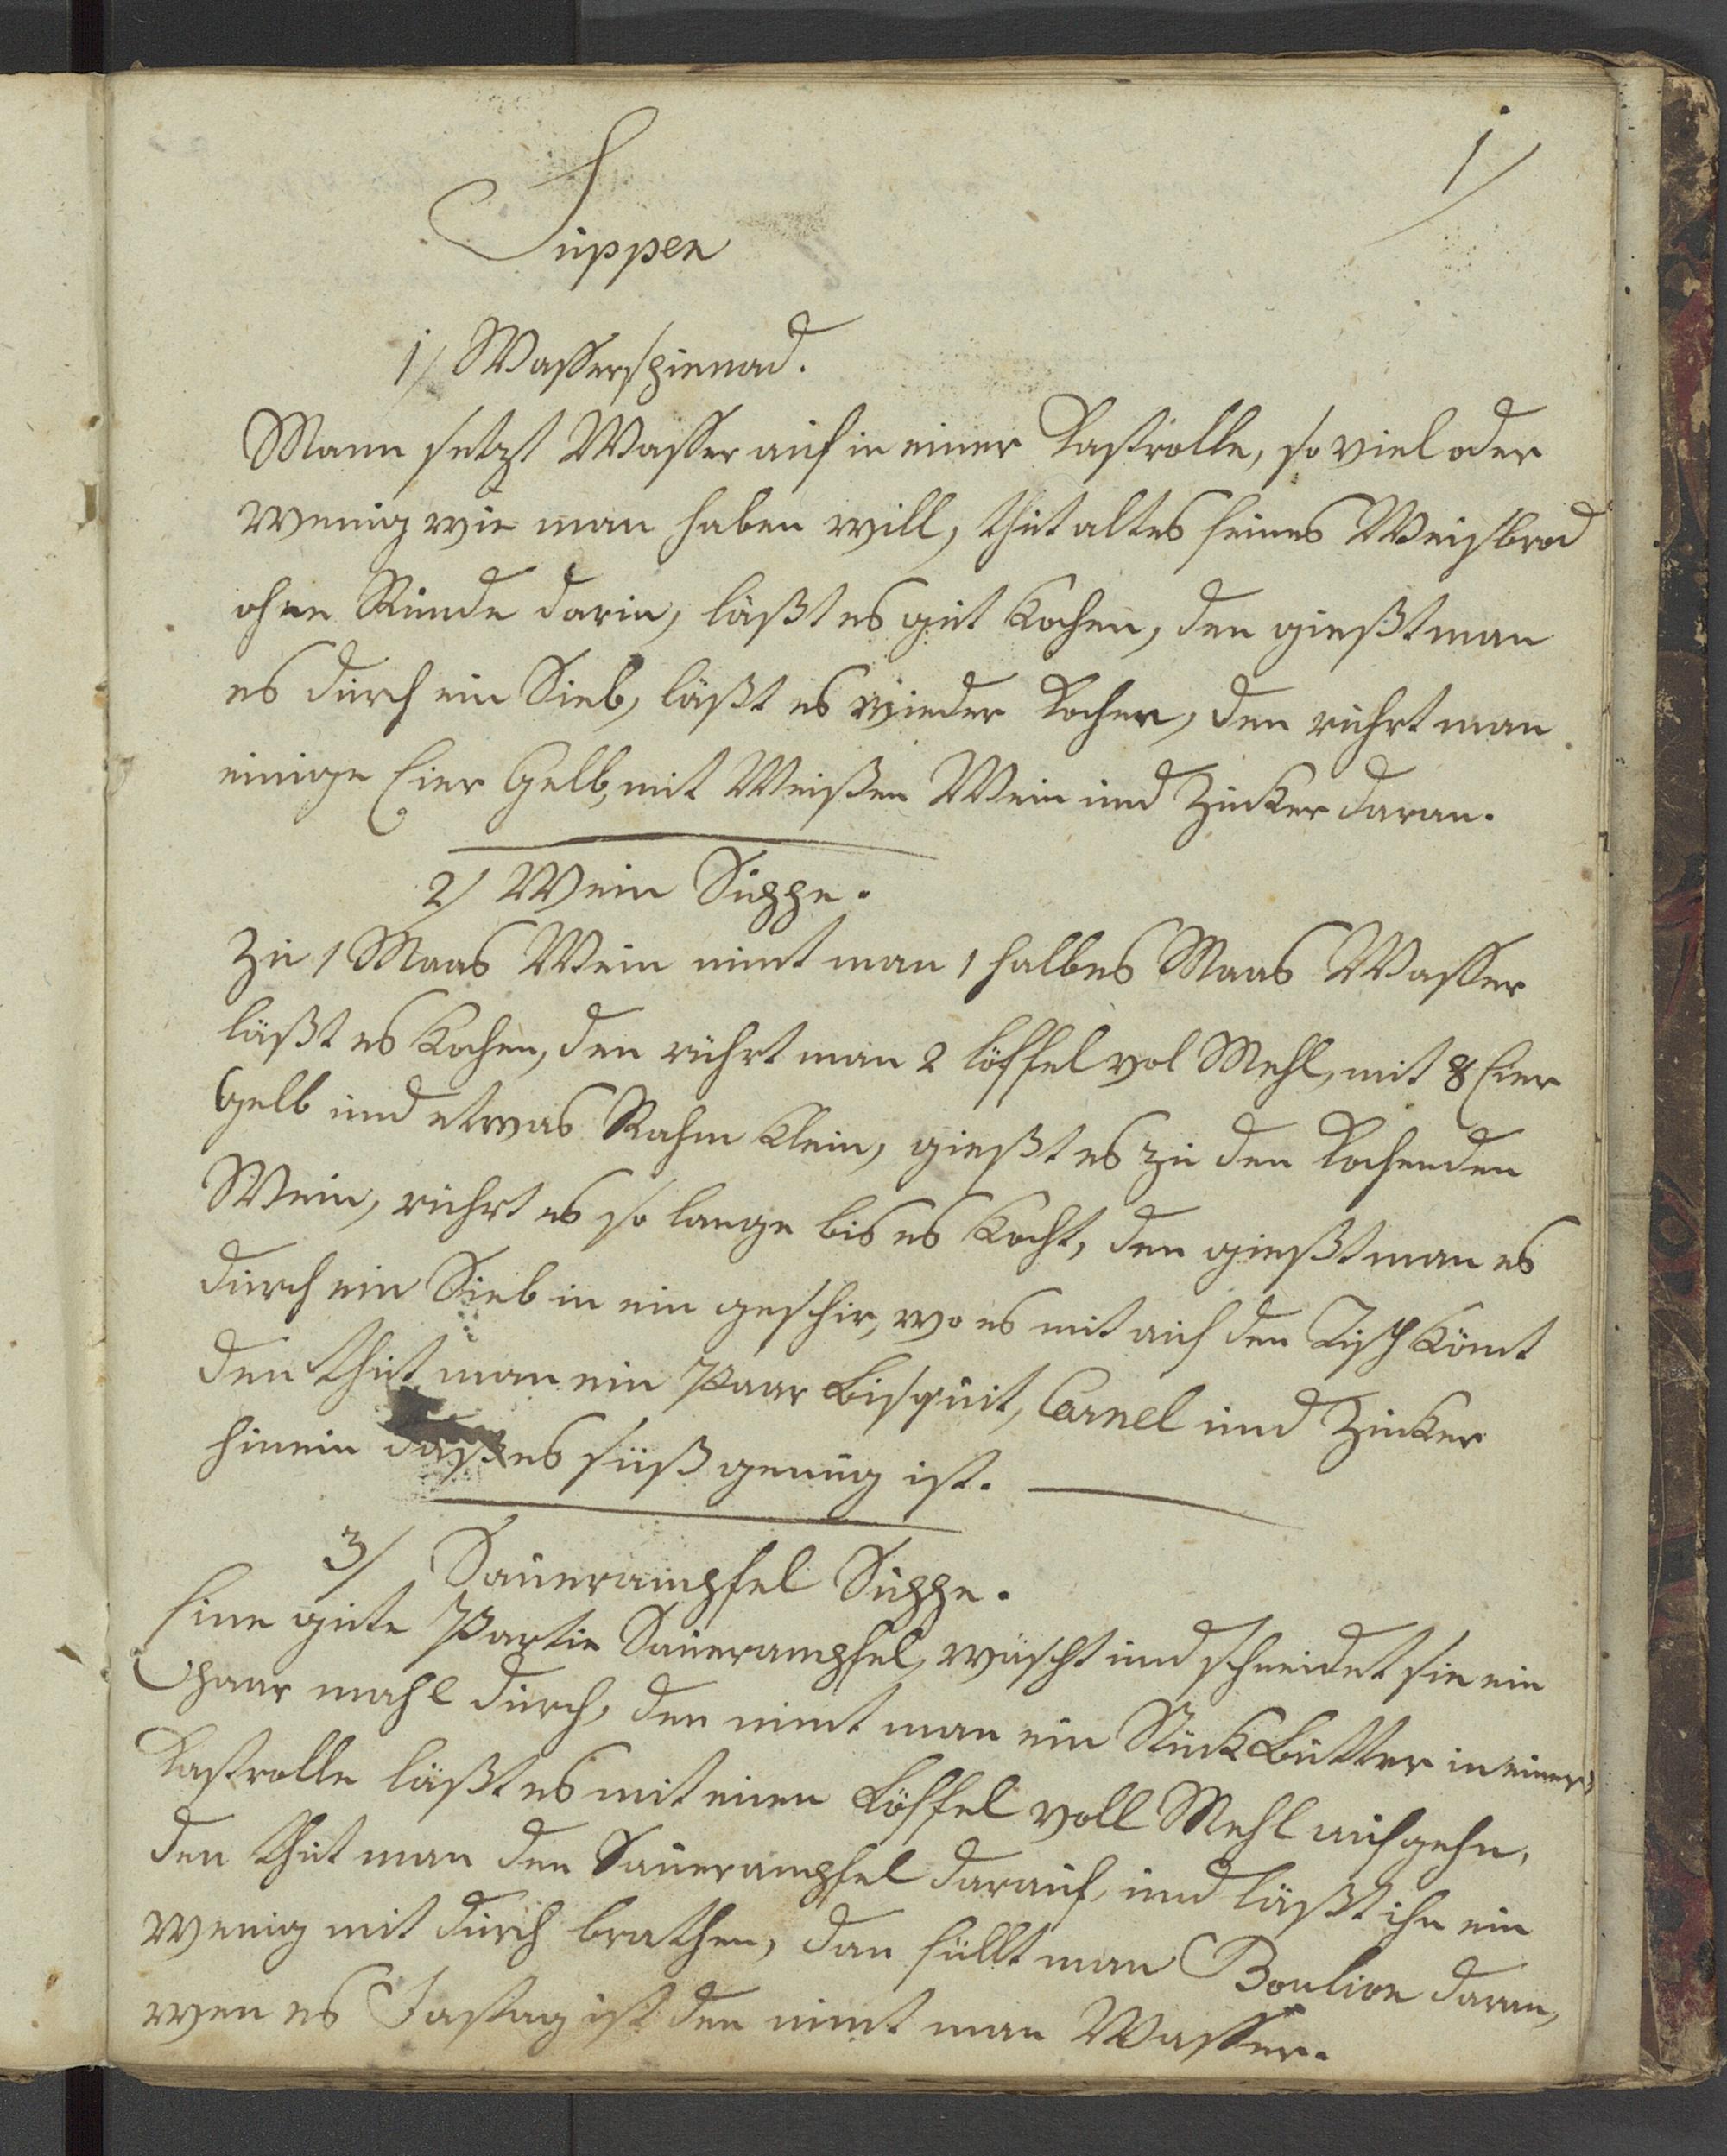 1/
Suppen
1/ Wasserspienad.
Mann setzt Wasser auf in einer Kastrolle, so viel oder
wenig wie man haben will, thut altes feines Weisbrod
ohne Runde darin, läßt es gut Kochen, den gießt man
es durch ein Sieb, läßt es wieder Kochen, den rührt man
einige Eier Gelb, mit Weißen Wein und Zucker daran.
2/ Wein Suppe.
Zu 1 Maas Wein nimt man 1 halbes Maas Wasser
läßt es Kochen, den rührt man 2 löffel vol Mehl, mit 8 Eier
Gelb und etwas Rahm klein, gießt es zu den Kochenden
Wein, rührt es so lange bis es Kocht, den gießt man es
durch ein Sieb in ein geschir, wo es mit auf den Tisch Kömt
den thut man ein Paar Bisquit, Carnel und Zucker
hinein daß es süß genug ist.
3/ Sauerampfel Suppe.
Eine gute Partie Sauerampfel, wäscht und schneidet sie ein
paar mahl durch, den nimt man ein Stück Butter in einer
Kastrolle läßt es mit einen Löffel voll Mehl aufgehn,
den thut man den Sauerampfel darauf, und läßt ihn ein
wenig mit durch brathen, dan füllt man Boulion daran,
wen es Fastag ist den nimt man Wasser.